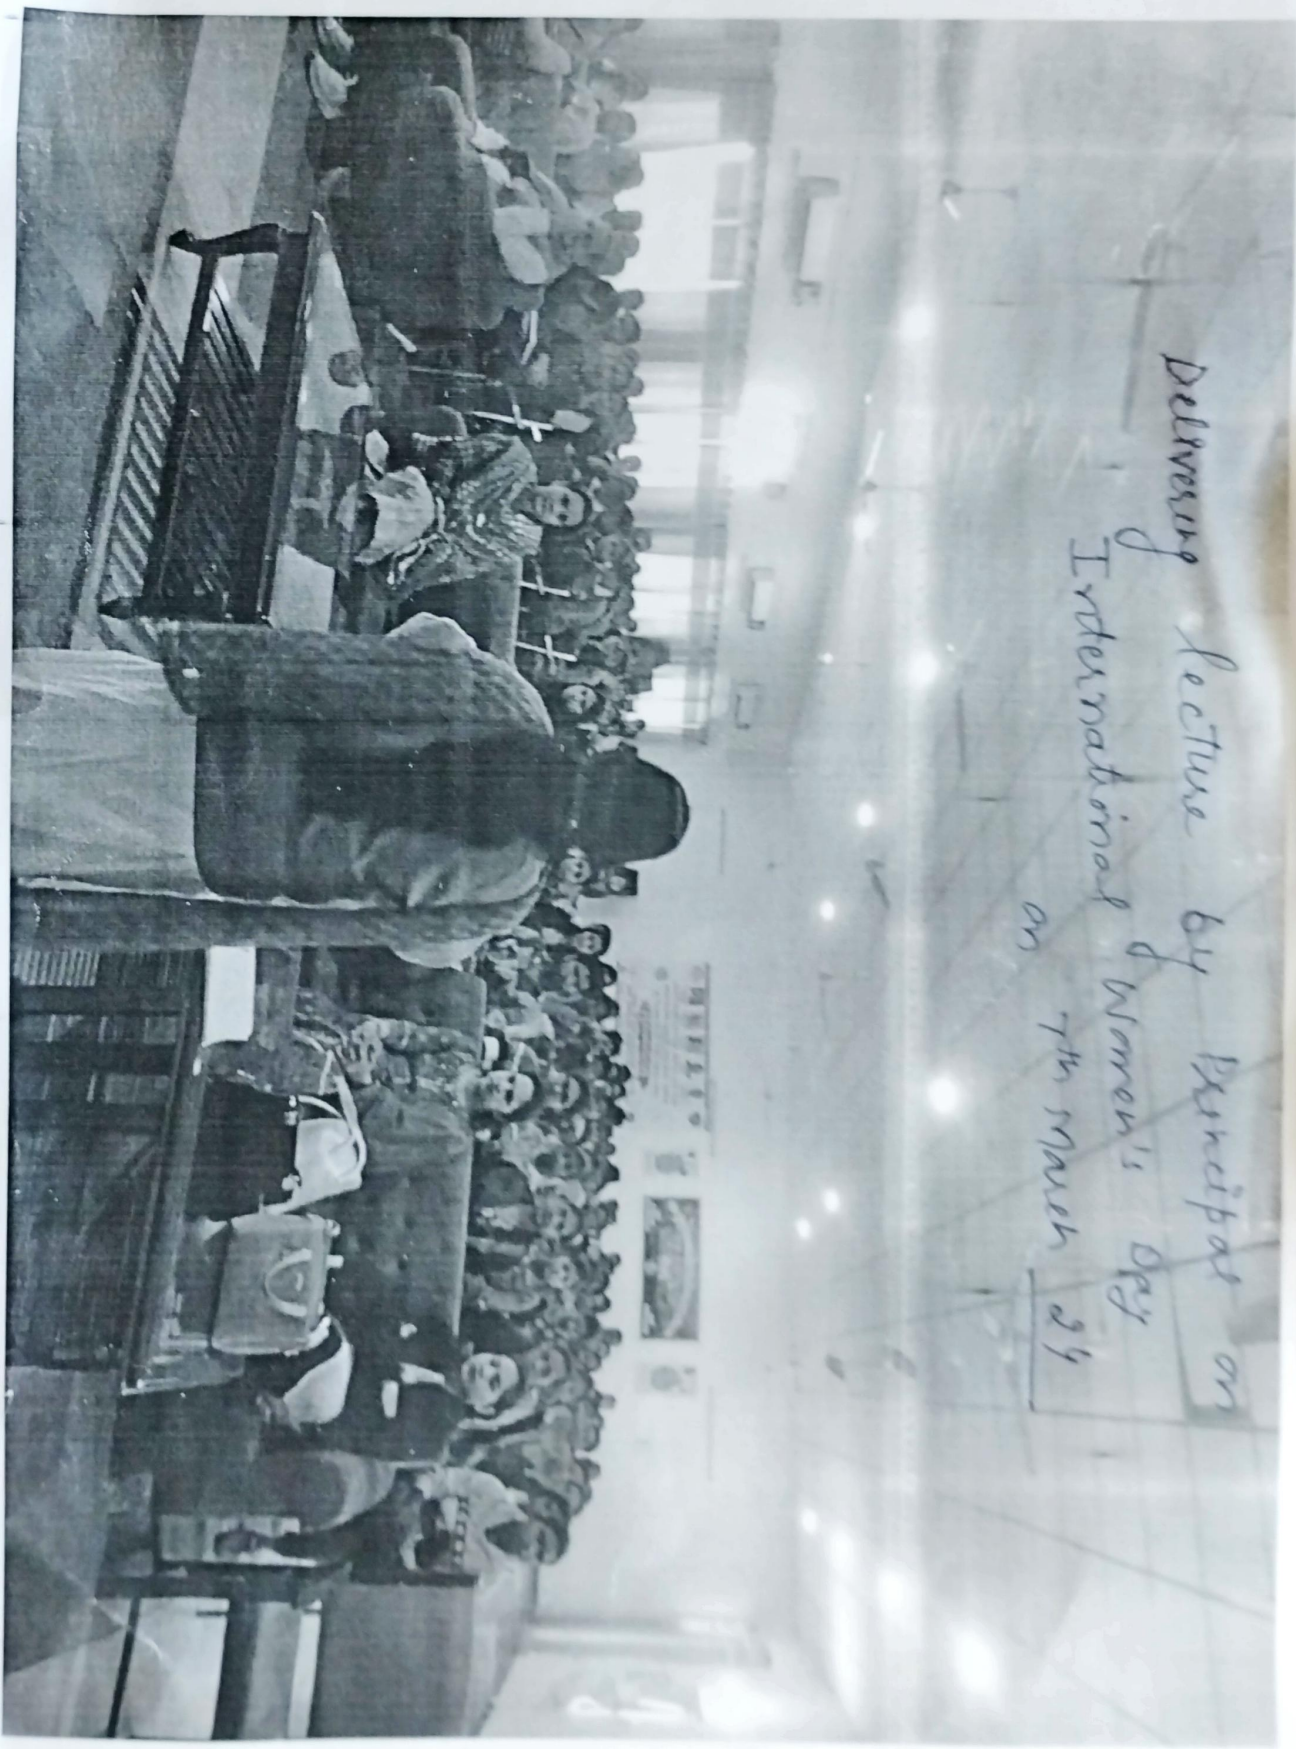 Delivering lecture by Principal on
International Women's Day
on 7th March 24